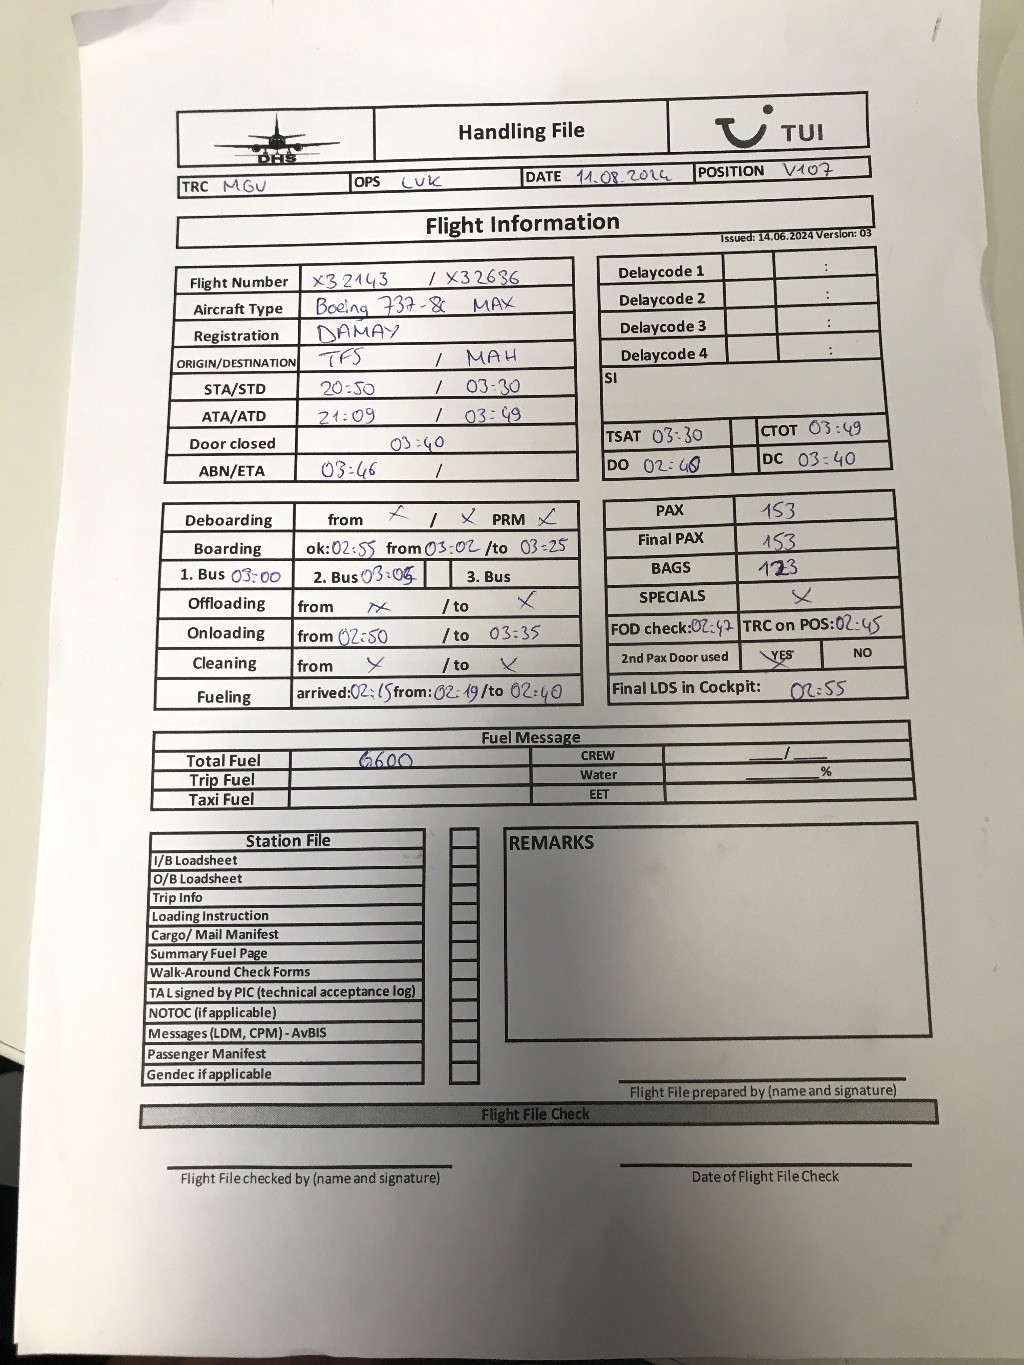 DHS
Handling File
TUI
TRC MGU OPS LUK DATE 11.08.2024 POSITION V107
Flight Information
Issued: 14.06.2024 Version: 03
Flight Number X32143 / X32636
Aircraft Type Boeing 737-8 MAX
Registration DAMAY
ORIGIN/DESTINATION TFS / MAH
STA/STD 20:50 / 03:30
ATA/ATD 21:09 / 03:49
Door closed 03:40
ABN/ETA 03:46 /
Delaycode 1 :
Delaycode 2 :
Delaycode 3 :
Delaycode 4 :
SI
TSAT 03:30 CTOT 03:49
DO 02:40 DC 03:40
Deboarding from X / X PRM X
Boarding ok:02:55 from 03:02 /to 03:25
1. Bus 03:00 2. Bus 03:05 3. Bus
Offloading from X / to X
Onloading from 02:50 / to 03:35
Cleaning from X / to X
Fueling arrived:02:15 from: 02:19 /to 02:40
PAX 153
Final PAX 153
BAGS 123
SPECIALS X
FOD check:02:47 TRC on POS:02:45
2nd Pax Door used YES NO
Final LDS in Cockpit: 02:55
Fuel Message
Total Fuel 6600 CREW ____/____
Trip Fuel Water ________%
Taxi Fuel EET
Station File
I/B Loadsheet
O/B Loadsheet
Trip Info
Loading Instruction
Cargo/ Mail Manifest
Summary Fuel Page
Walk-Around Check Forms
TAL signed by PIC (technical acceptance log)
NOTOC (if applicable)
Messages (LDM, CPM) - AvBIS
Passenger Manifest
Gendec if applicable
REMARKS
Flight File prepared by (name and signature)
Flight File Check
Flight File checked by (name and signature)
Date of Flight File Check